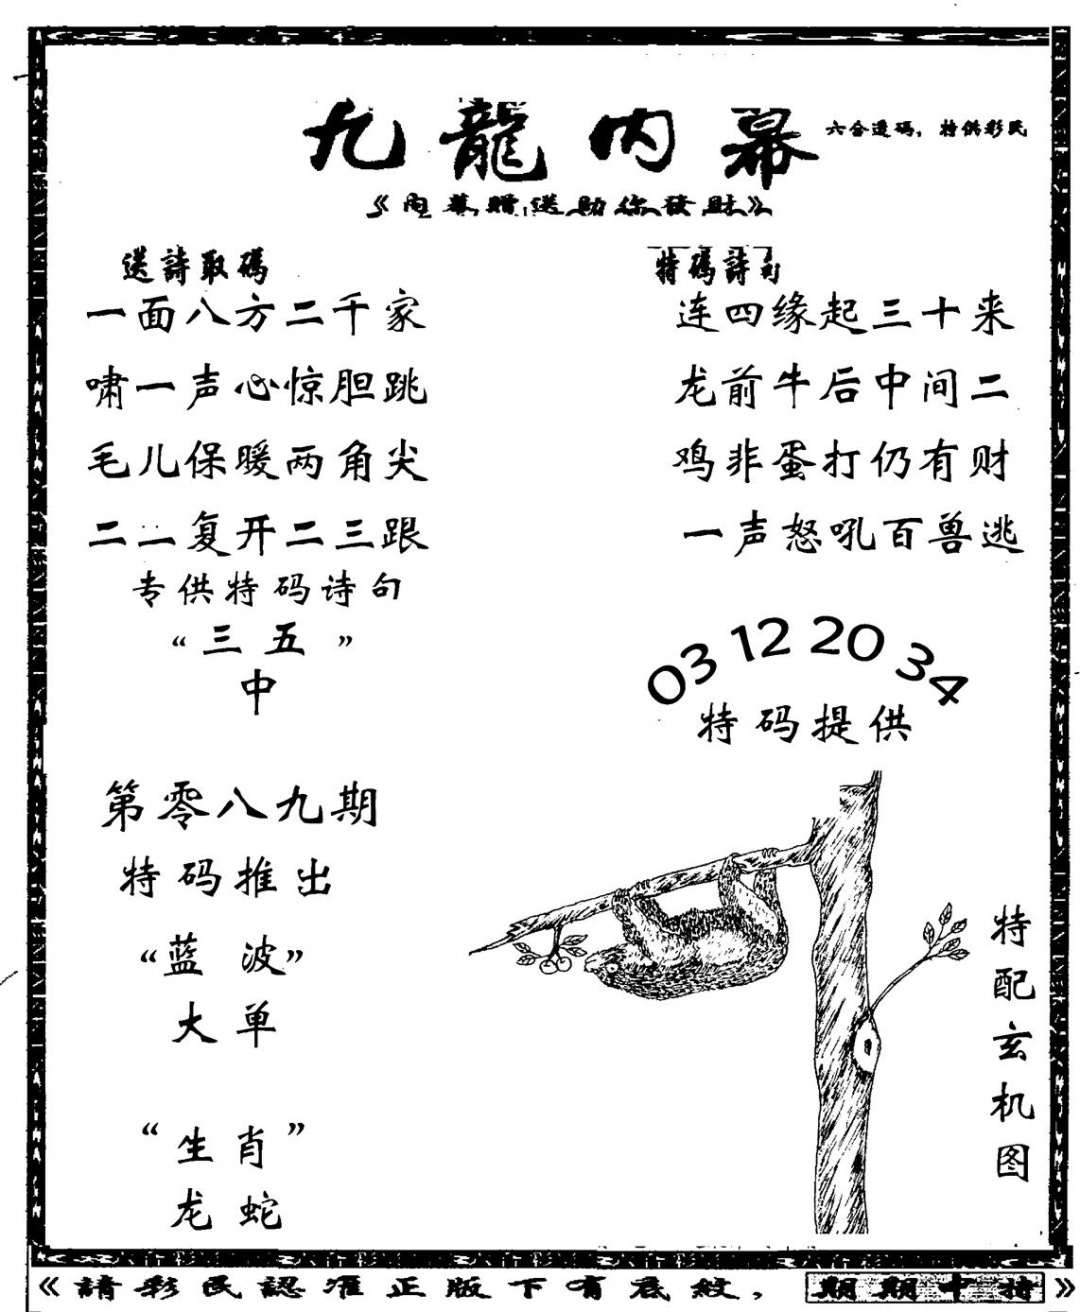 九龍内幕
六合透码，特供彩民
《内幕赠送助你發財》
送詩取碼
一面八方二千家
啸一声心惊胆跳
毛儿保暖两角尖
二二复开二三跟
专供特码诗句
“三五”
中
特碼詩句
连四缘起三十来
龙前牛后中间二
鸡非蛋打仍有财
一声怒吼百兽逃
03 12 20 34
特码提供
第零八九期
特码推出
“蓝波”
大单
“生肖”
龙蛇
特配玄机图
《請彩民認准正版下有底紋，期期中特》